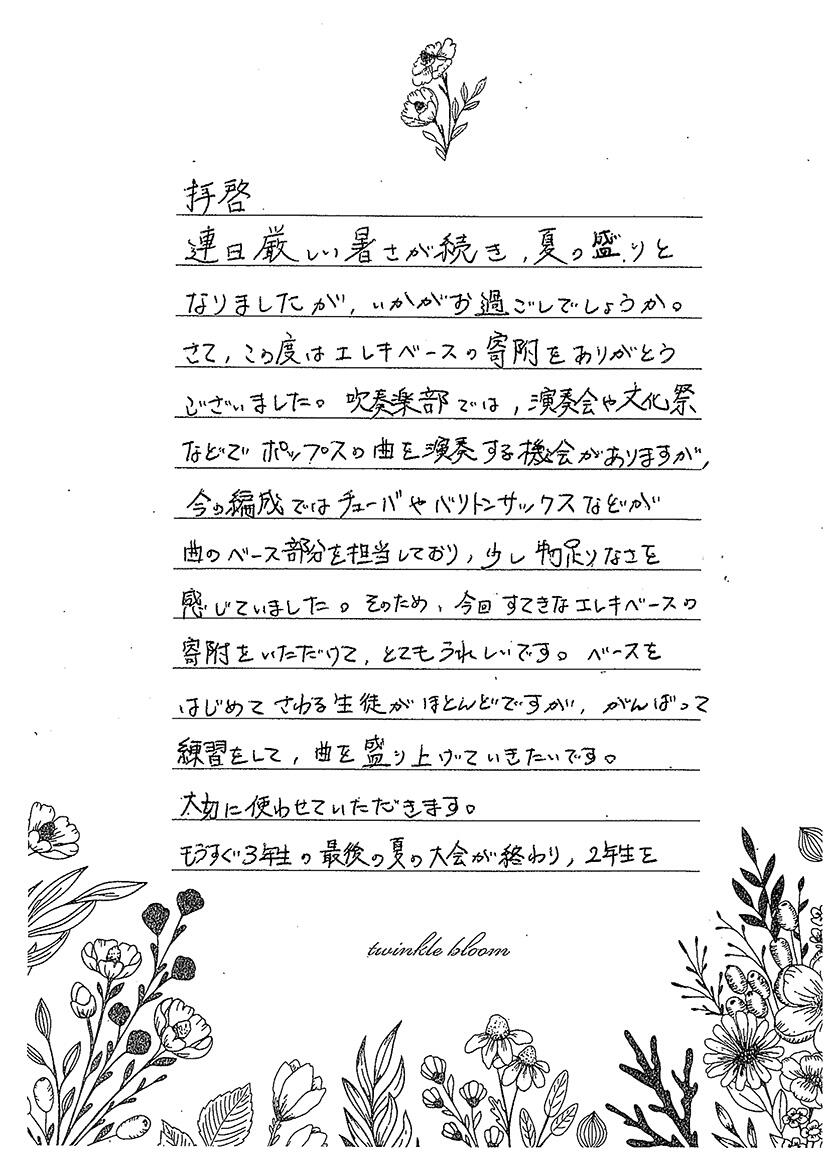 拝啓
連日厳しい暑さが続き、夏の盛りと
なりましたが、いかがお過ごしでしょうか。
さて、この度はエレキベースの寄附をありがとう
ございました。吹奏楽部では、演奏会や文化祭
などでポップスの曲を演奏する機会がありますが、
今の編成ではチューバやバリトンサックスなどが
曲のベース部分を担当しており、少し物足りなさを
感じていました。そのため、今回すてきなエレキベースの
寄附をいただけて、とてもうれしいです。ベースを
はじめてさわる生徒がほとんどですが、がんばって
練習をして、曲を盛り上げていきたいです。
大切に使わせていただきます。
もうすぐ3年生の最後の夏の大会が終わり、2年生を
twinkle bloom